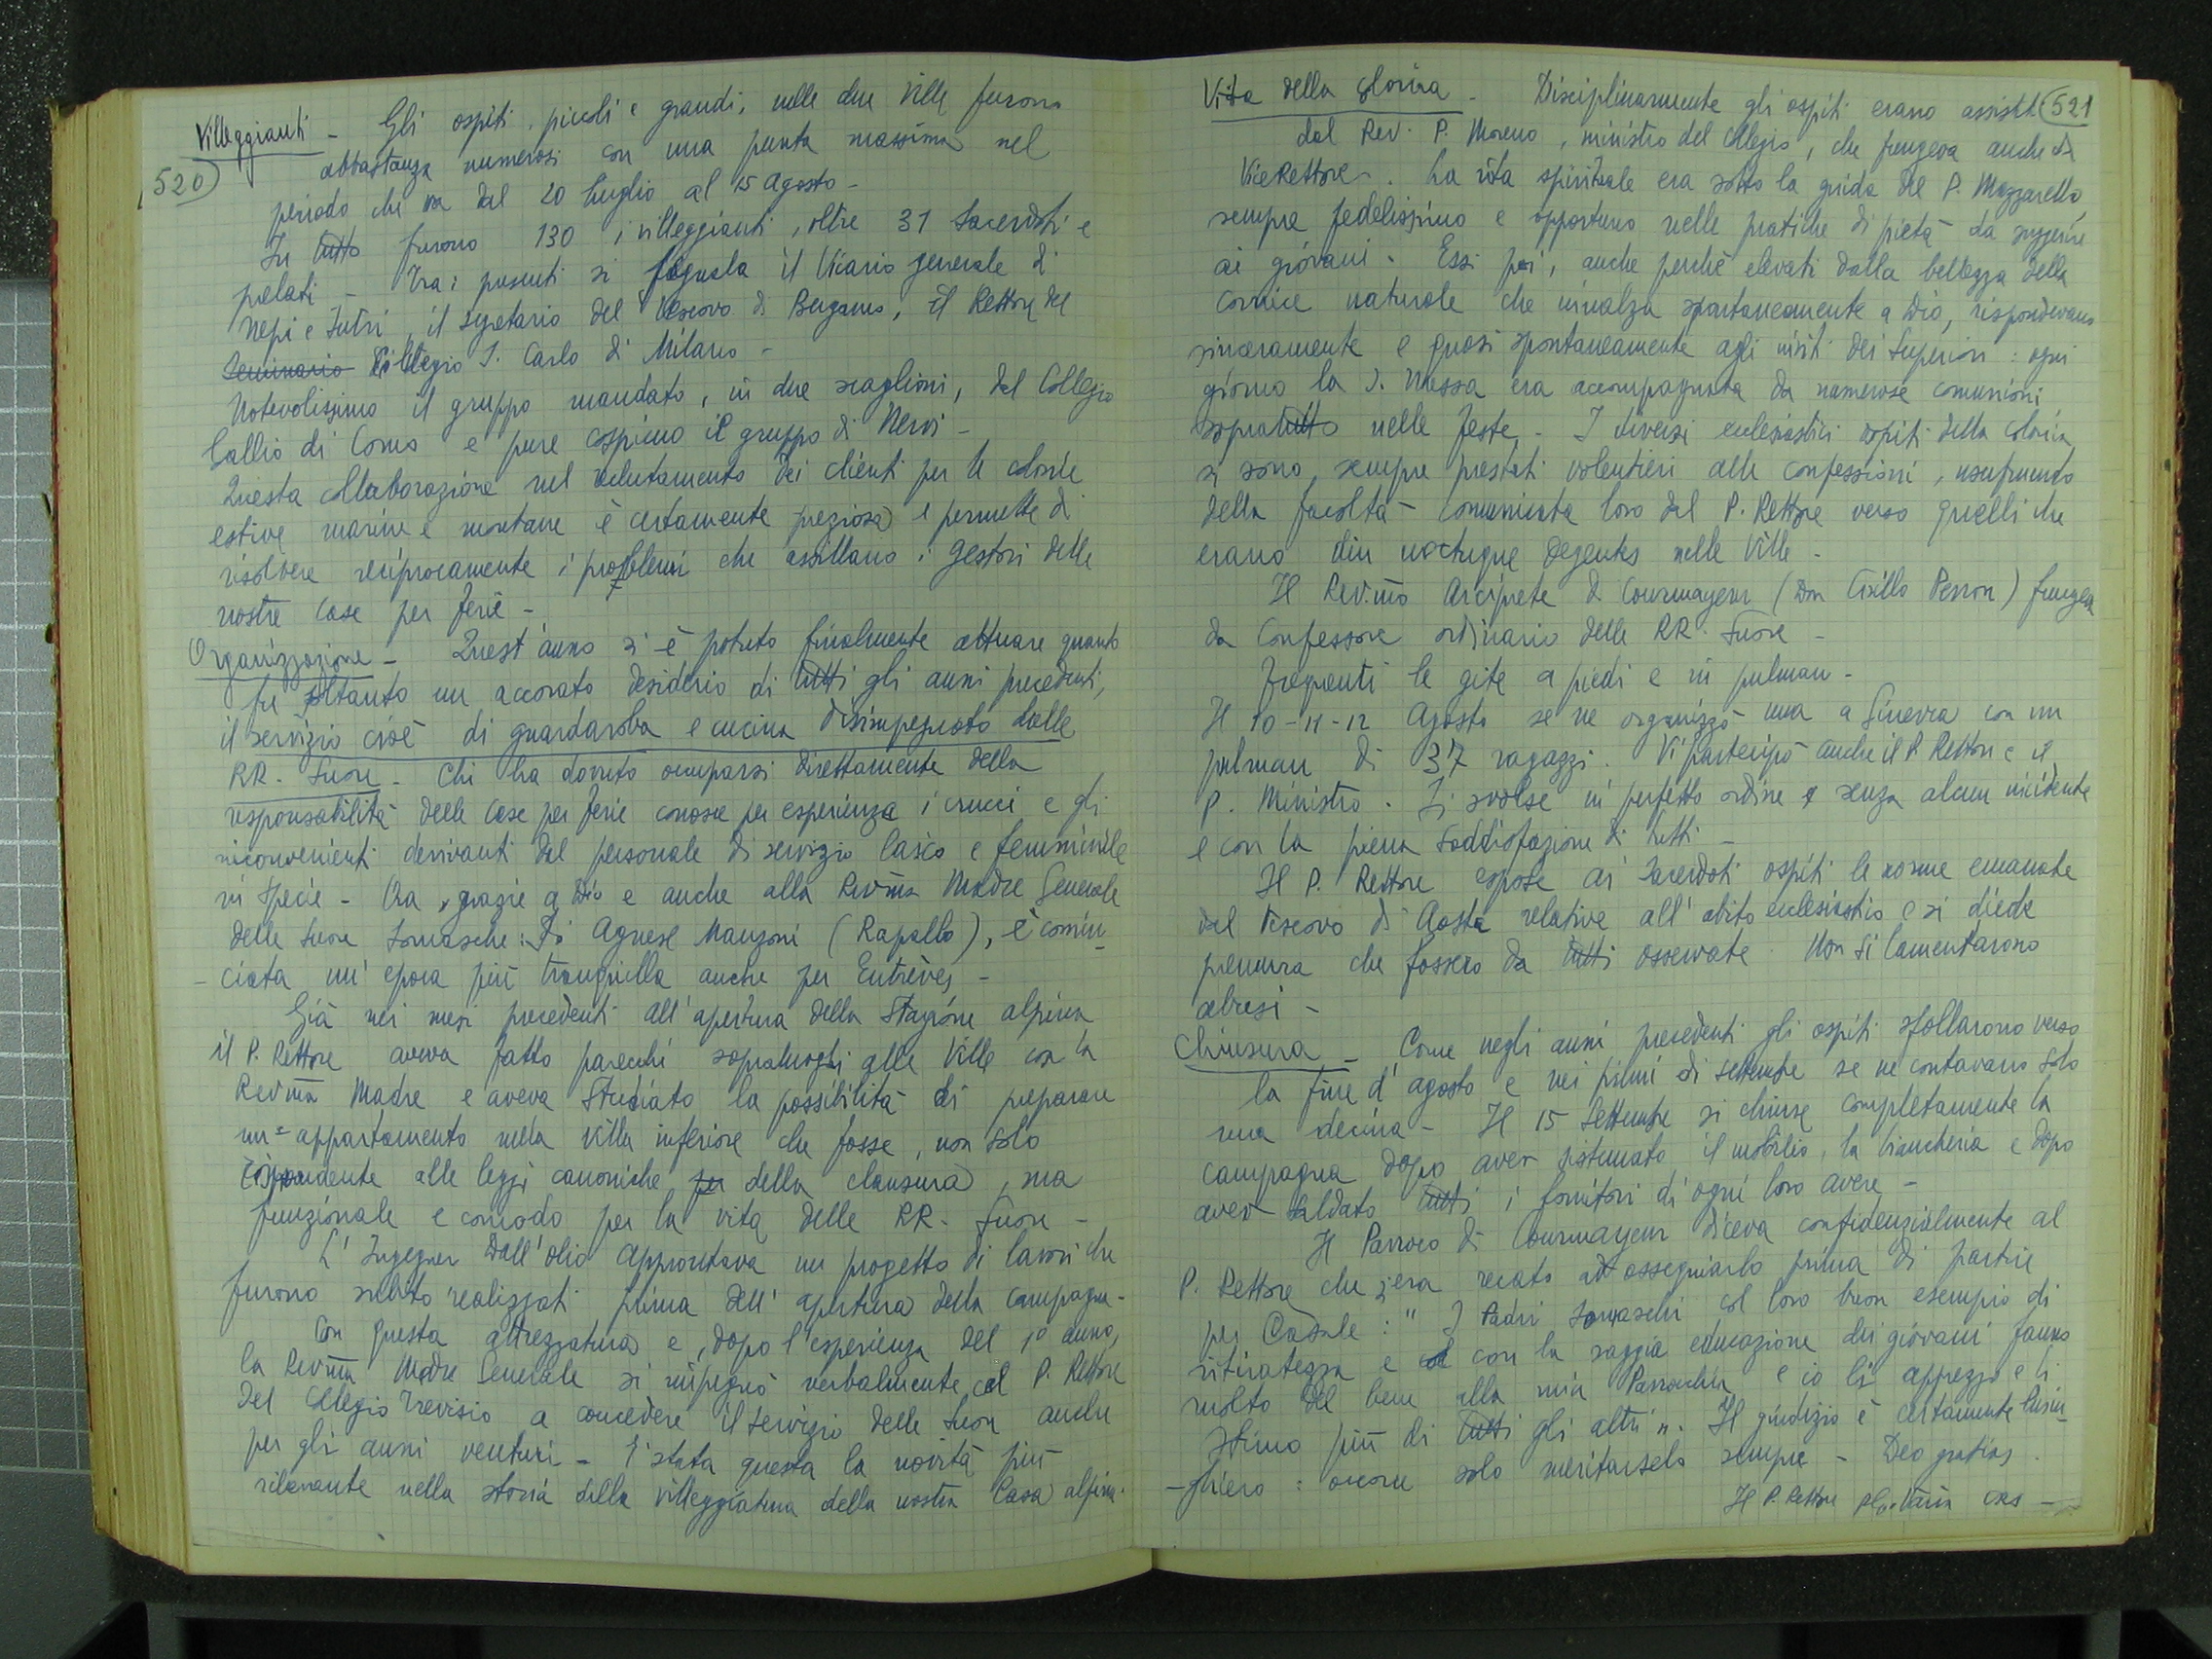 520
Villeggianti - Gli ospiti, piccoli e grandi, nelle due Ville furono
abbastanza numerosi con una punta massima nel
periodo che va dal 20 Luglio al 15 Agosto -
In tutto furono 130 i villeggianti, oltre 31 Sacerdoti e
prelati - Tra i presenti si segnala il Vicario generale di
Nepi e Sutri, il segretario del Vescovo di Bergamo, il Rettore del
Seminario Collegio S. Carlo di Milano -
Notevolissimo il gruppo mandato, in due scaglioni, dal Collegio
Gallio di Como e pure cospicuo il gruppo di Nervi -
Questa collaborazione nel reclutamento dei clienti per le colonie
estive marine e montane è certamente preziosa e permette di
risolvere reciprocamente i problemi che assillano i Gestori delle
nostre Case per ferie -
Organizzazione - Quest'anno si è potuto finalmente attuare quanto
fu soltanto un accorato desiderio di tutti gli anni precedenti,
il servizio cioè di guardaroba e cucina disimpegnato dalle
RR. Suore - Chi ha dovuto occuparsi direttamente della
responsabilità delle Case per ferie conosce per esperienza i crucci e gli
inconvenienti derivanti dal personale di servizio laico e femminile
in specie - Ora, grazie a Dio e anche alla Rev.ma Madre Generale
delle Suore Somasche: Agnese Manzoni (Rapallo), è comin-
- ciata un'epoca più tranquilla anche per Entrèves -
Già nei mesi precedenti all'apertura della Stagione alpina
il P. Rettore aveva fatto parecchi sopraluoghi alle Ville con la
Rev.ma Madre e aveva studiato la possibilità di preparare
un appartamento nella Villa inferiore che fosse, non solo
rispondente alle leggi canoniche per della clausura, ma
funzionale e comodo per la vita delle RR. Suore -
L'Ingegner Dall'Olio approntava un progetto di lavori che
furono subito realizzati prima dell'apertura della campagna -
Con questa attrezzatura e, dopo l'esperienza del 1° anno,
la Rev.ma Madre Generale si impegnò verbalmente col P. Rettore
del Collegio Trevisio a concedere il servizio delle Suore anche
per gli anni venturi - E' stata questa la novità più
rilevante nella storia della villeggiatura della nostra Casa alpina.
521
Vita della colonia - Disciplinarmente gli ospiti erano assistiti
dal Rev. P. Moreno, ministro del Collegio, che fungeva anche da
ViceRettore. La vita spirituale era sotto la guida del P. Mazzarello,
sempre fedelissimo e opportuno nelle pratiche di pietà da suggerire
ai giovani. Essi poi, anche perchè elevati dalla bellezza della
cornice naturale che innalza spontaneamente a Dio, rispondevano
sinceramente e quasi spontaneamente agli inviti dei Superiori: ogni
giorno la S. Messa era accompagnata da numerose comunioni
sopratutto nelle feste - I diversi ecclesiastici ospiti della colonia
si sono sempre prestati volentieri alle confessioni, usufruendo
della facoltà comunicata loro dal P. Rettore verso quelli che
erano diu noctuque degentes nelle Ville -
Il Rev.mo Arciprete di Courmayeur (Don Cirillo Perron) fungeva
da Confessore ordinario delle RR. Suore -
Frequenti le gite a piedi e in pulman -
Il 10-11-12 Agosto se ne organizzò una a Ginevra con un
pulman di 37 ragazzi. Vi partecipò anche il P. Rettore e il
P. Ministro. Si svolse in perfetto ordine e senza alcun incidente
e con la piena soddisfazione di tutti -
Il P. Rettore espose ai Sacerdoti ospiti le norme emanate
dal Vescovo di Aosta relative all'abito ecclesiastico e si diede
premura che fossero da tutti osservate. Non si lamentarono
abusi -
Chiusura - Come negli anni precedenti gli ospiti sfollarono verso
la fine d'agosto e nei primi di settembre se ne contavano solo
una decina - Il 15 Settembre si chiuse completamente la
campagna dopo aver sistemato il mobilio, la biancheria e dopo
aver saldato tutti i fornitori di ogni loro avere -
Il Parroco di Courmayeur diceva confidenzialmente al
P. Rettore che s'era recato ad ossequiarlo prima di partire
per Casale: "I Padri Somaschi col loro buon esempio di
ritiratezza e con la saggia educazione dei giovani fanno
molto del bene alla mia Parrochia e io li apprezzo e li
stimo più di tutti gli altri". Il giudizio è certamente lusin-
- ghiero: occorre solo meritarselo sempre - Deo gratias.
Il P. Rettore crs -